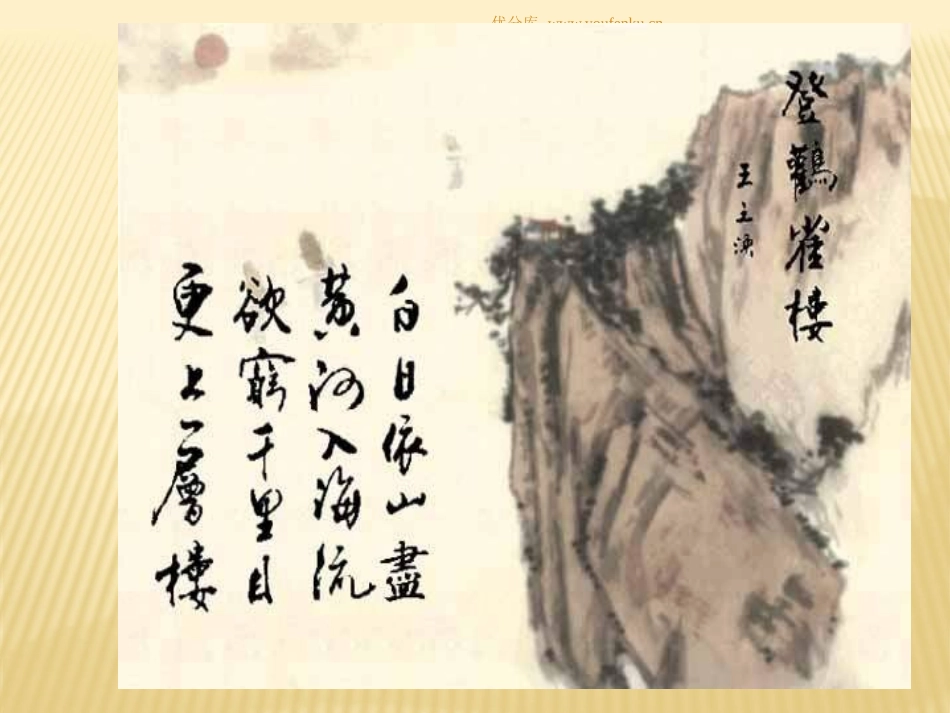 优分库 www.youfenku.cn
登鸛雀樓
王之渙
白日依山盡
黄河入海流
欲窮千里目
更上一層樓